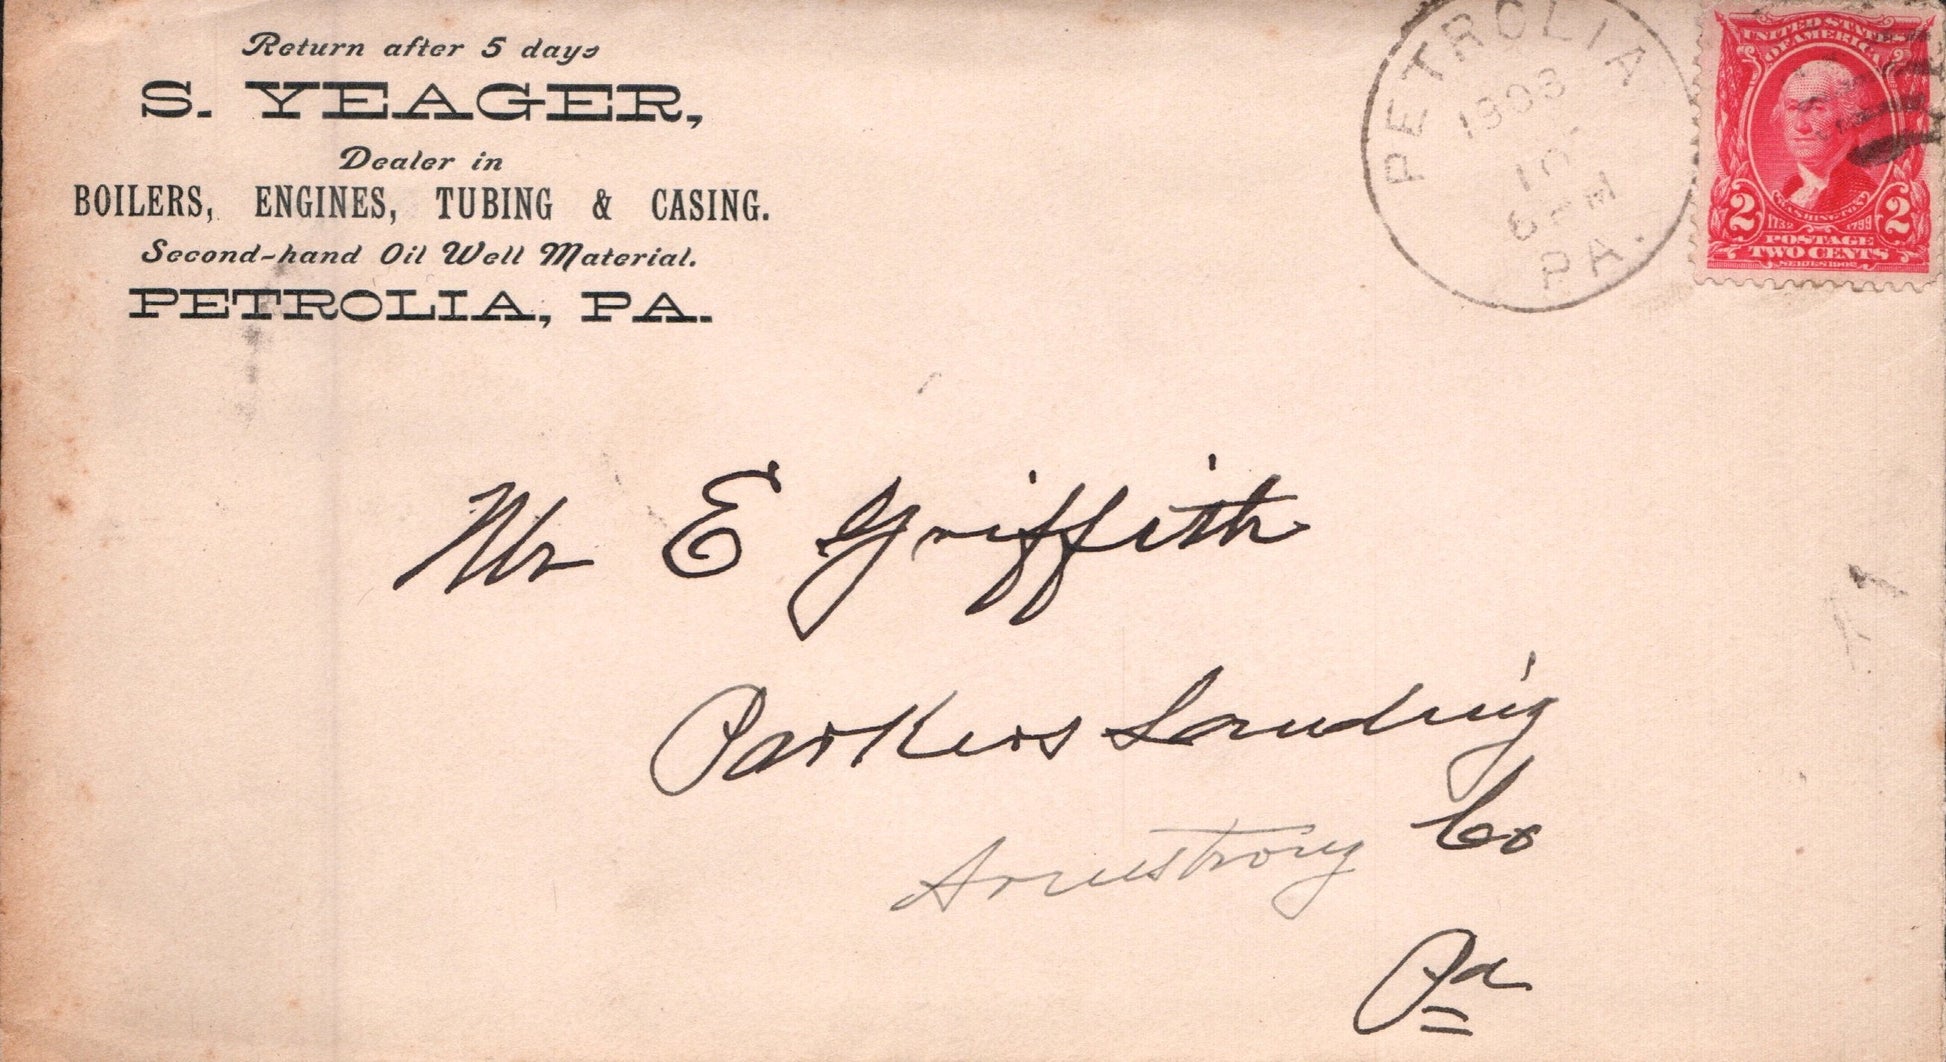 Return after 5 days
S. YEAGER,
Dealer in
BOILERS, ENGINES, TUBING & CASING.
Second-hand Oil Well Material.
PETROLIA, PA.
PETROLIA
1903
10
PM
PA.
UNITED STATES
OF AMERICA
WASHINGTON
1732 1799
2 2
POSTAGE
TWO CENTS
SERIES 1902
Mr E Griffith
Parkers Landing
Armstrong Co
Pa